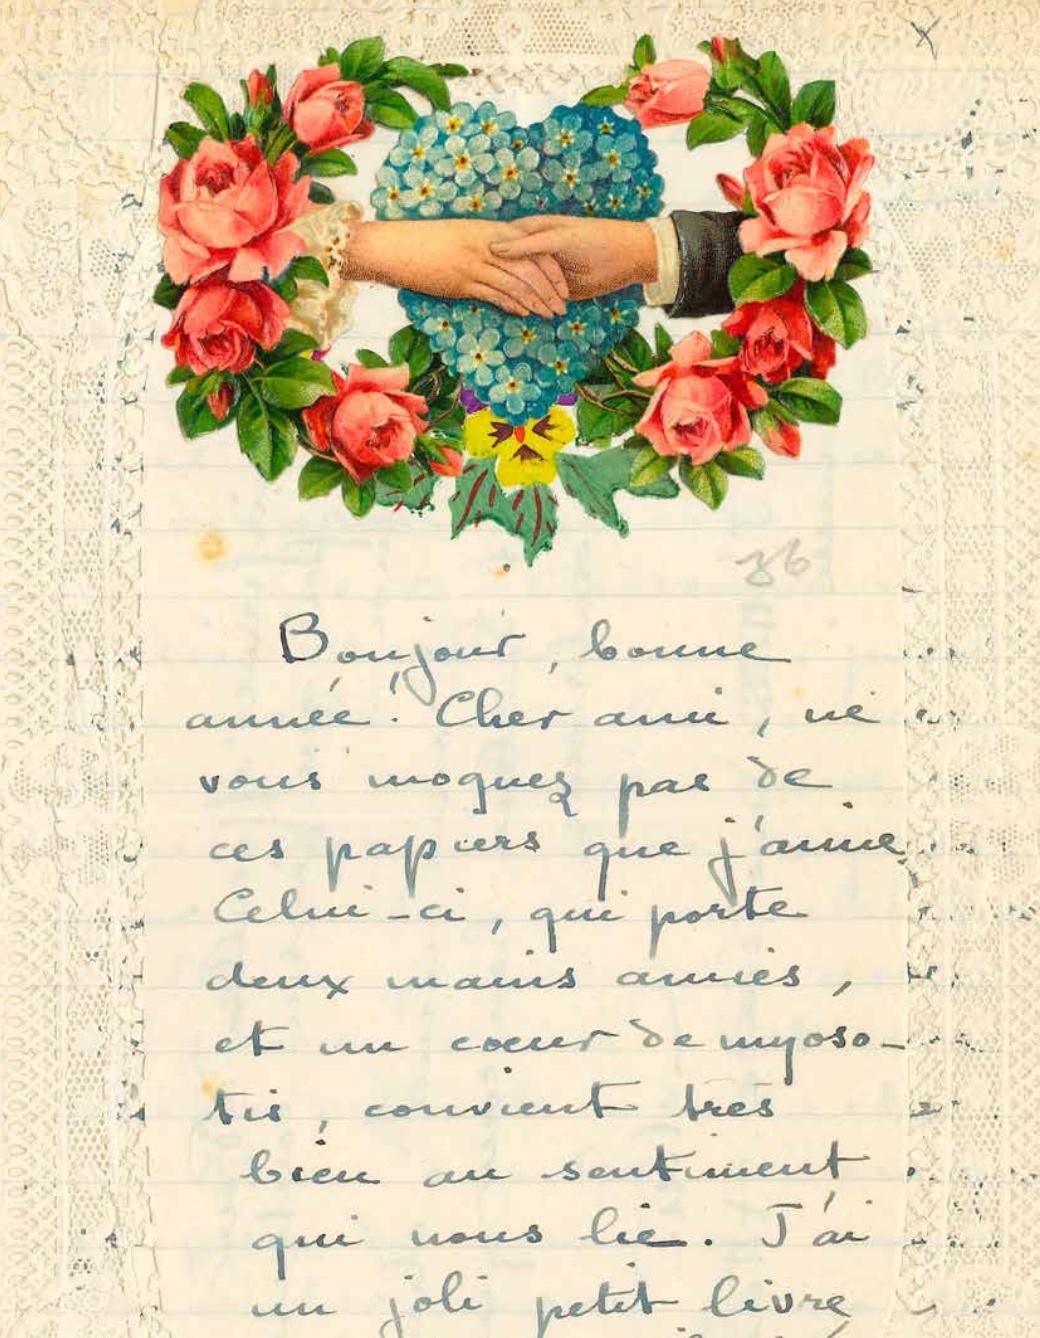 36
Bonjour, bonne
année! Cher ami, ne
vous moquez pas de
ces papiers que j'aime.
Celui-ci, qui porte
deux mains amies,
et un cœur de myoso-
tis, convient très
bien au sentiment
qui nous lie. J'ai
un joli petit livre